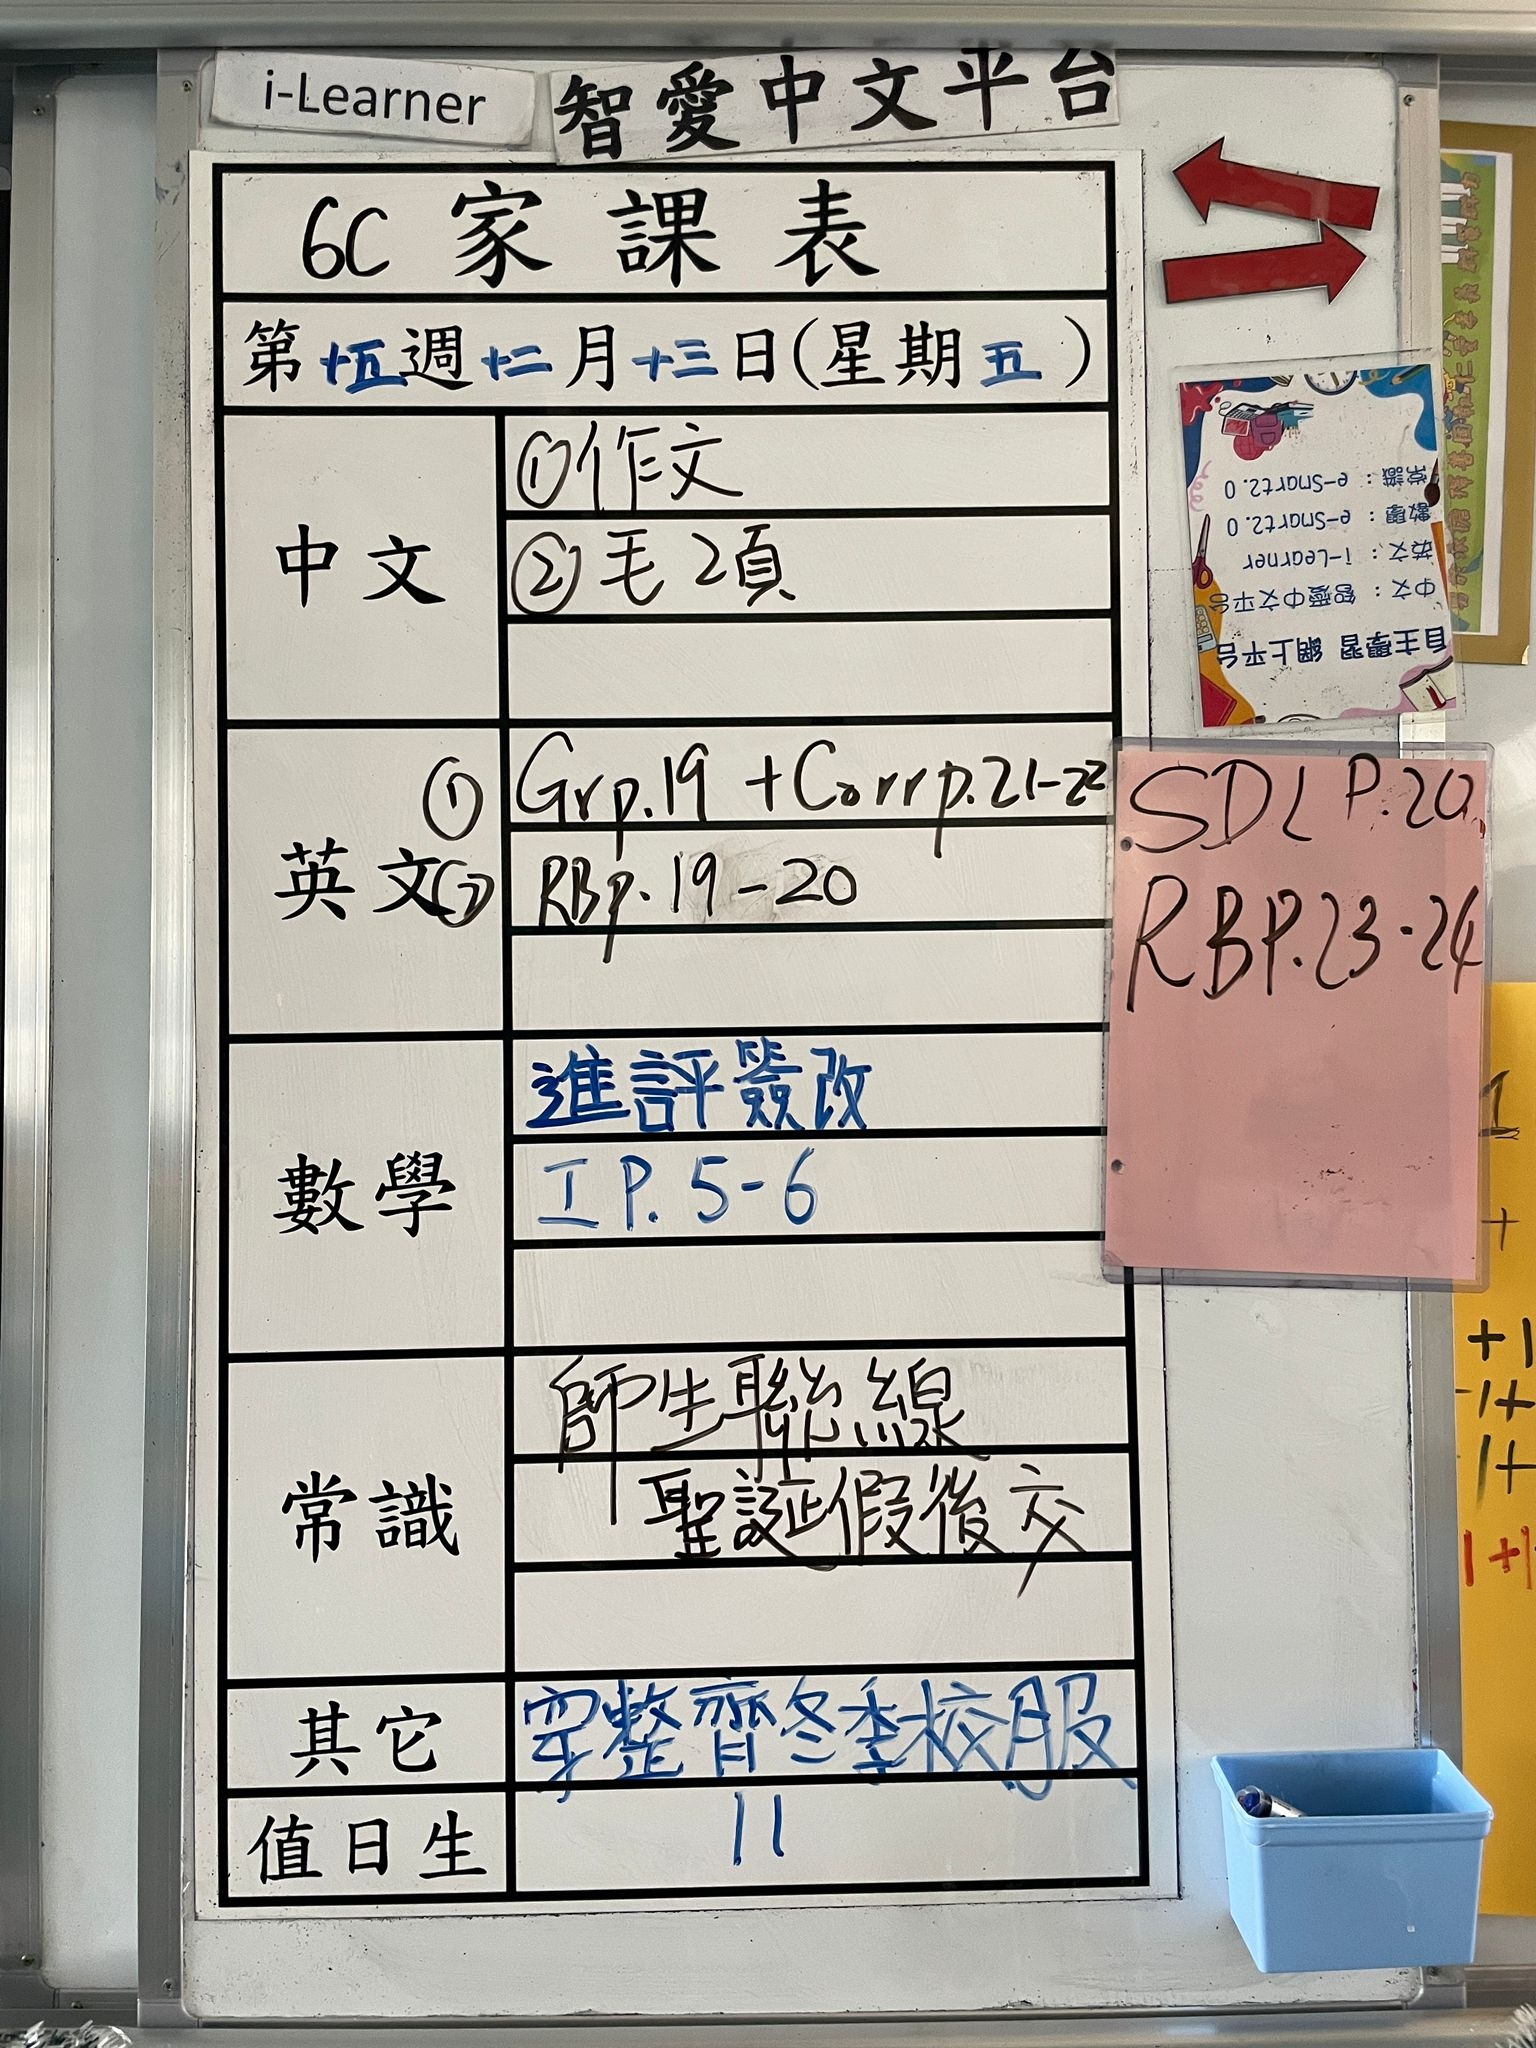 i-Learner 智愛中文平台
6C 家課表
第十五週十二月十三日(星期五)
中文
①作文
②毛2頁
英文
① Grp.19 + Corrp.21-22
② RBp.19-20
數學
進評簽改
IP.5-6
常識
師生聯線
聖誕假後交
其它
穿整齊冬季校服
值日生
11
自主學習 網上平台
中文：智愛中文平台
英文：i-Learner
數學：e-Smart2.0
常識：e-Smart2.0
SDL P.20
RBP.23-24
1
+
+1
-1+
-1+
1+1